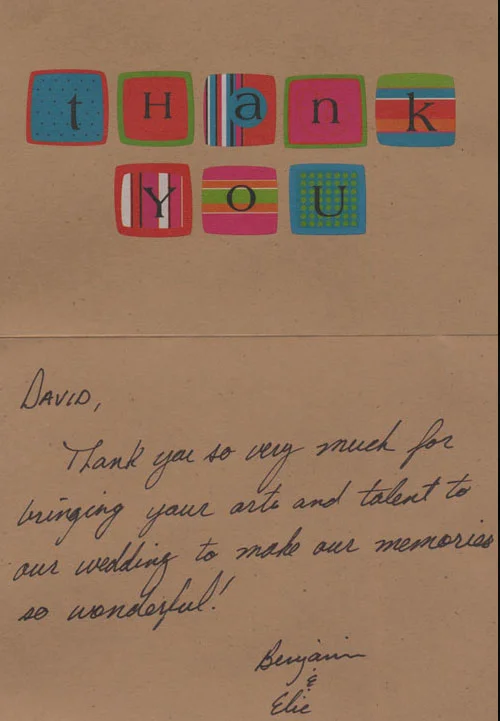 tHank
YOU
DAVID,
Thank you so very much for
bringing your arts and talent to
our wedding to make our memories
so wonderful!
Benjamin
&
Elie